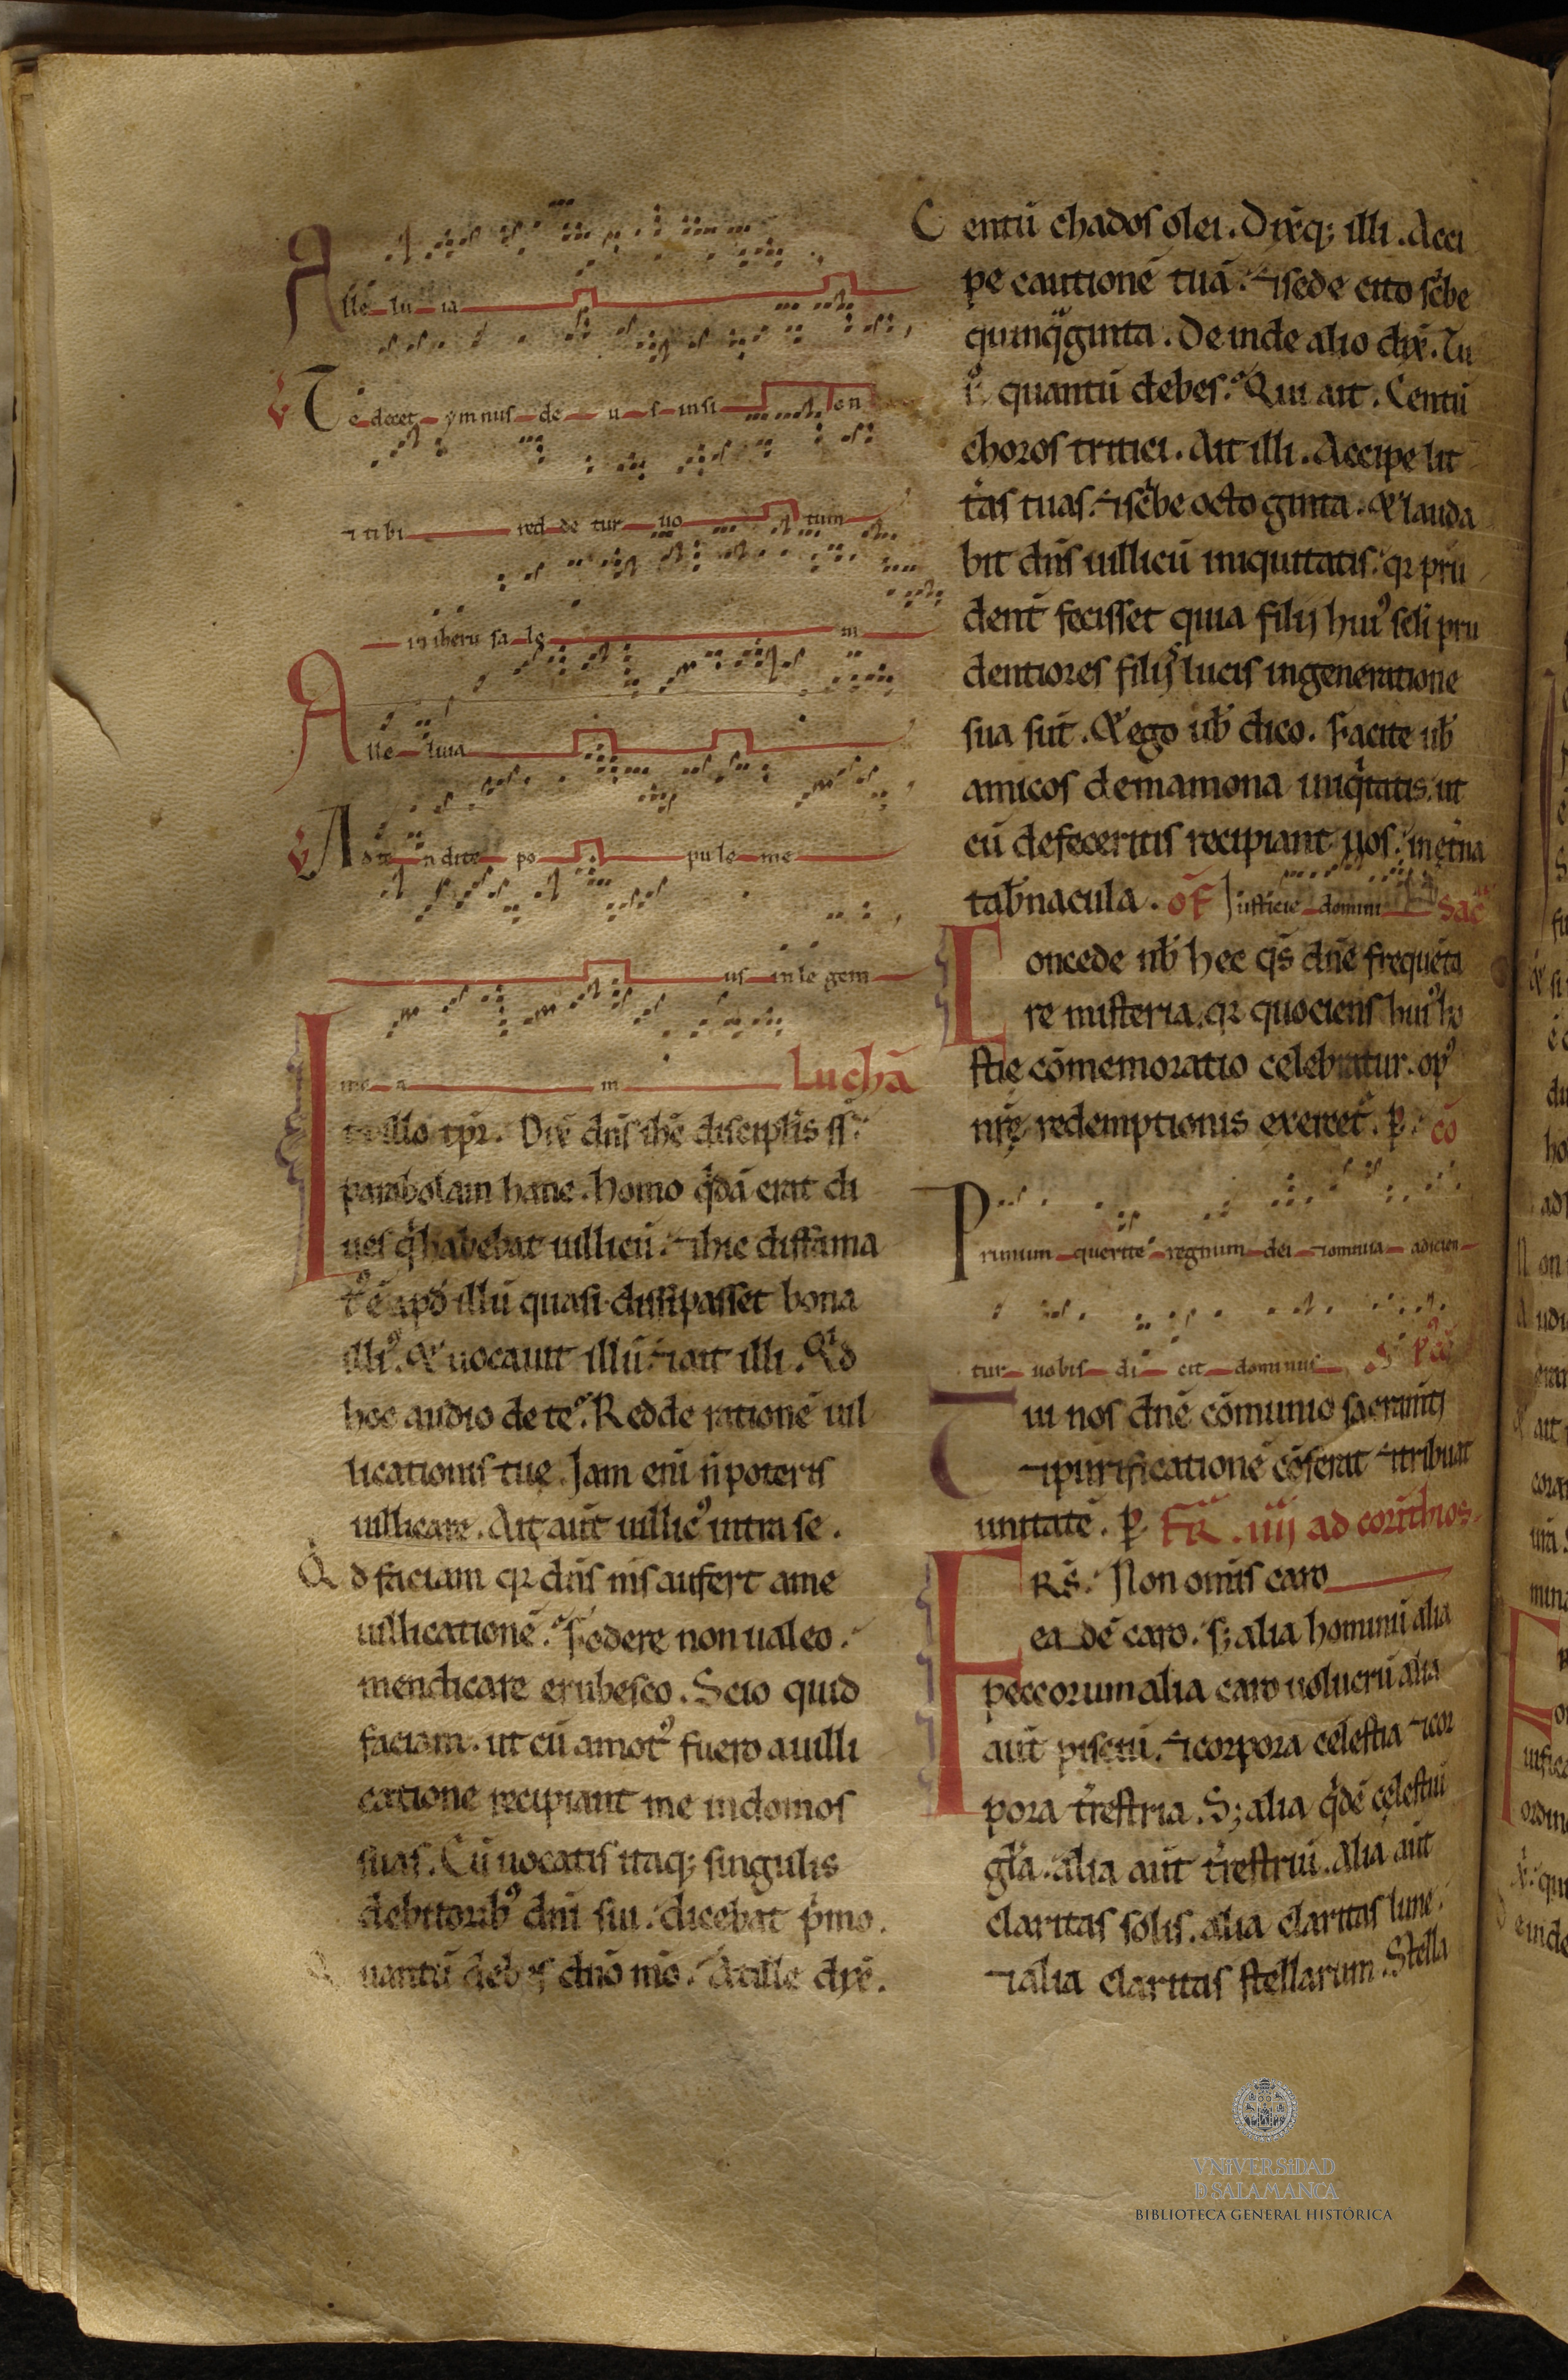 Alle lu ia
v Te decet ymnus de us insi on
⁊ tibi red de tur uo tum
in iheru sa le m
Alle luia
v Adte ndite po pule me
us in le gem
me a m Luchā
In illo tp̄r. Dix̄ dn̄s ih̄c discipl̄is s̄s:
parabolam hanc. homo q̇dā erat di
ues q̇ habebat uillicū. ⁊ hic diffama
tꝰ ē apđ illū quasi dissipasset bona
illiꝰ. & uocauit illū ⁊ ait illi. Qid
hoc audio de te? Redde rationē uil
licationis tuę. Jam eni n̄ poteris
uillicare. Ait aut̄ uillicꝰ intra se.
Qd faciam qꝛ dn̄s ms̄ aufert ame
uillicationē? Fodere non ualeo.
mendicare erubesco. Scio quid
faciam. ut cū amotꝰ fuero auilli
catione recipiant me indomos
suas. Cū uocatis itaq; singulis
debitoribꝰ dn̄i sui. dicebat p̍mo.
Quantū debes dn̄o mō. At ille dix̄.
Centū chados olei. Dix̄q; illi. Acci
pe cautionē tuā. ⁊ sede cito sc̍be
quinq̄ginta. Deinde alio dix̄. Tu
ů quantū debes? Qui ait. Centū
choros tritici. Ait illi. Accipe lit
t̄as tuas. ⁊ sc̍be octoginta. & lauda
bit dn̄s uillicū iniquitatis. qꝛ pru
dent̄ fecisset quia filij huiꝰ sc̄li pru
dentiores filijs lucis ingeneratione
sua sūt. & ego ūb dico. Facite ūb
amicos demamona iniq̍tatis. ut
cū defeceritis recipiant uos. in ęt̄na
tab̄nacula. oF Justicie domini Sac̄
Concede nb̄ hec q̄s dn̄e frequēta
re misteria. qꝛ quociens huiꝰ ho
stię cōmemoratio celebratur. opꝰ
nr̄ę redemptionis exercet̄. p̱. cō
Primum querite regnum dei ⁊ omnia adicien
tur uobis di cit dominus
Tui nos dn̄e cōmunio sacramīti
⁊ purificationē cōferat ⁊ tribuat
unitatē. p̱. FR̄. iiij ad corīthios.
FRS̄. Non omīs caro
eadē caro. s; alia hominū alia
peccorum alia caro uolucrū alia
aut̄ pisciū. ⁊ corpora celestia ⁊ cor
pora t̄restria. S; alia q̍dē cęlestiū
gl̄a. alia aut̄ t̄restriū. Alia aut̄
claritas solis. alia claritas lune.
⁊ alia claritas stellarum. Stella
VNIVERSIDAD
D SALAMANCA
BIBLIOTECA GENERAL HISTÓRICA